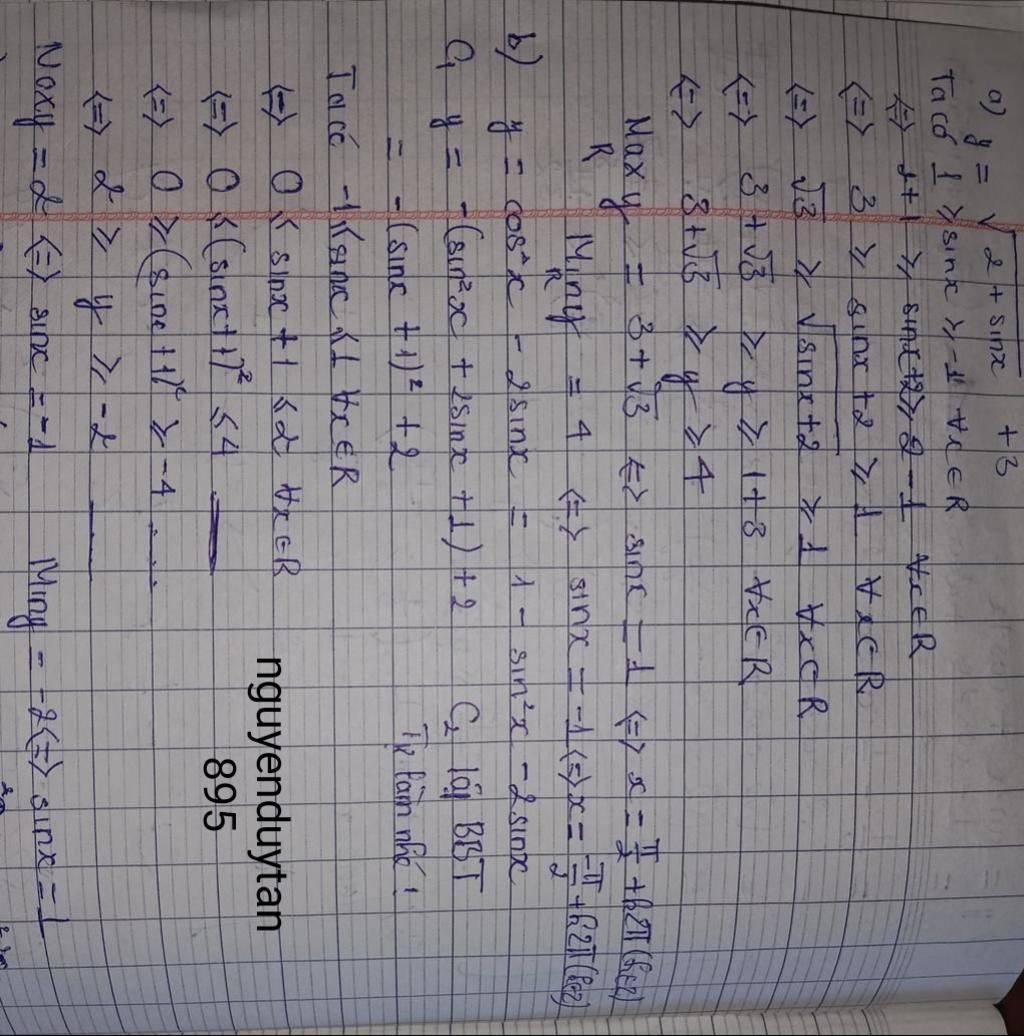 a) y = √(2 + sinx) + 3
Ta có 1 ≥ sinx ≥ -1 ∀x∈R
⇔ 2+1 ≥ sinx+2 ≥ 2-1 ∀x∈R
⇔ 3 ≥ sinx+2 ≥ 1 ∀x∈R
⇔ √3 ≥ √(sinx+2) ≥ 1 ∀x∈R
⇔ 3+√3 ≥ y ≥ 1+3 ∀x∈R
⇔ 3+√3 ≥ y ≥ 4
Max y = 3+√3 ⇔ sinx = 1 ⇔ x = π/2 + k2π (k∈Z)
R
Min y = 4 ⇔ sinx = -1 ⇔ x = -π/2 + k2π (k∈Z)
R
b) y = cos²x - 2sinx = 1 - sin²x - 2sinx
C₁ y = -(sin²x + 2sinx + 1) + 2 C₂ lập BBT
= -(sinx + 1)² + 2 Tự làm nhé!
Ta có -1 ≤ sinx ≤ 1 ∀x∈R
⇔ 0 ≤ sinx + 1 ≤ 2 ∀x∈R
⇔ 0 ≤ (sinx+1)² ≤ 4
⇔ 0 ≥ (sinx+1)² ≥ -4 ....
⇔ 2 ≥ y ≥ -2
Maxy = 2 ⇔ sinx = -1 Miny = -2 ⇔ sinx = 1
nguyenduytan
895